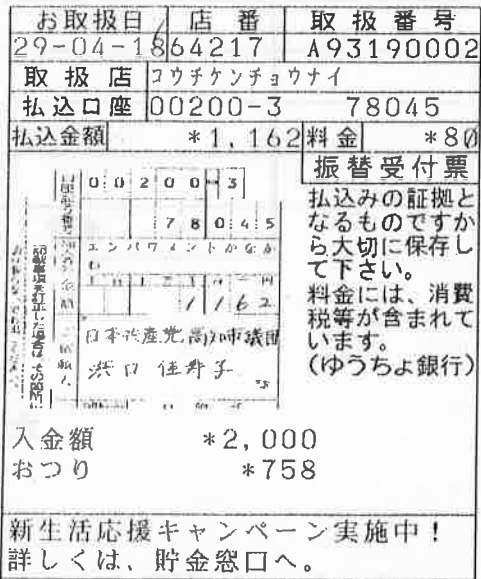 お取扱日 店番 取扱番号
29-04-18 64217 A93190002
取扱店 コウチケンチョウナイ
払込口座 00200-3 78045
払込金額 *1,162 料金 *80
振替受付票
払込みの証拠と
なるものですか
ら大切に保存し
て下さい。
料金には、消費
税等が含まれて
います。
(ゆうちょ銀行)
00200-3
78045
エンパワメントかながわ
1162
日本共産党高知市議団
記載事項を訂正した場合は、その箇所に
入金額 *2,000
おつり *758
新生活応援キャンペーン実施中!
詳しくは、貯金窓口へ。